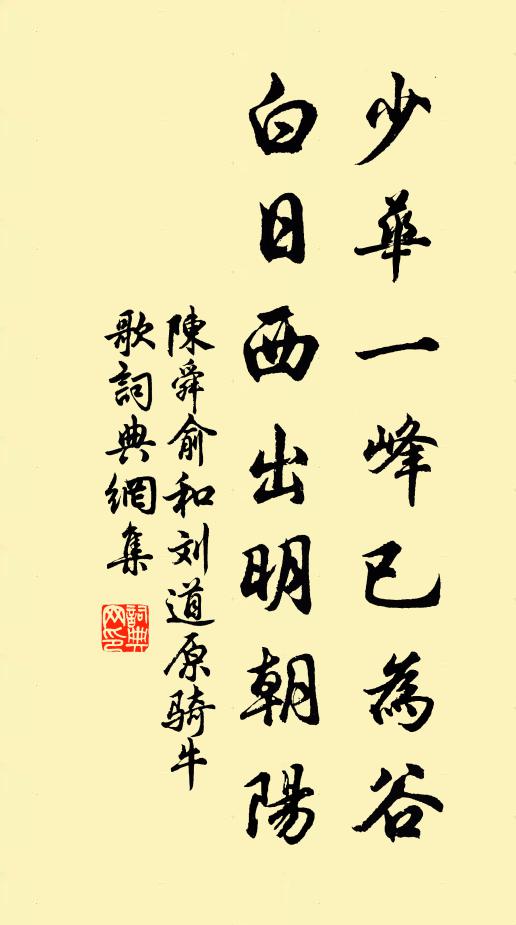 少華一峰已為谷
白日西出明朝陽
陳舜俞和刘道原骑牛
歌詞典網集
詞典
网印